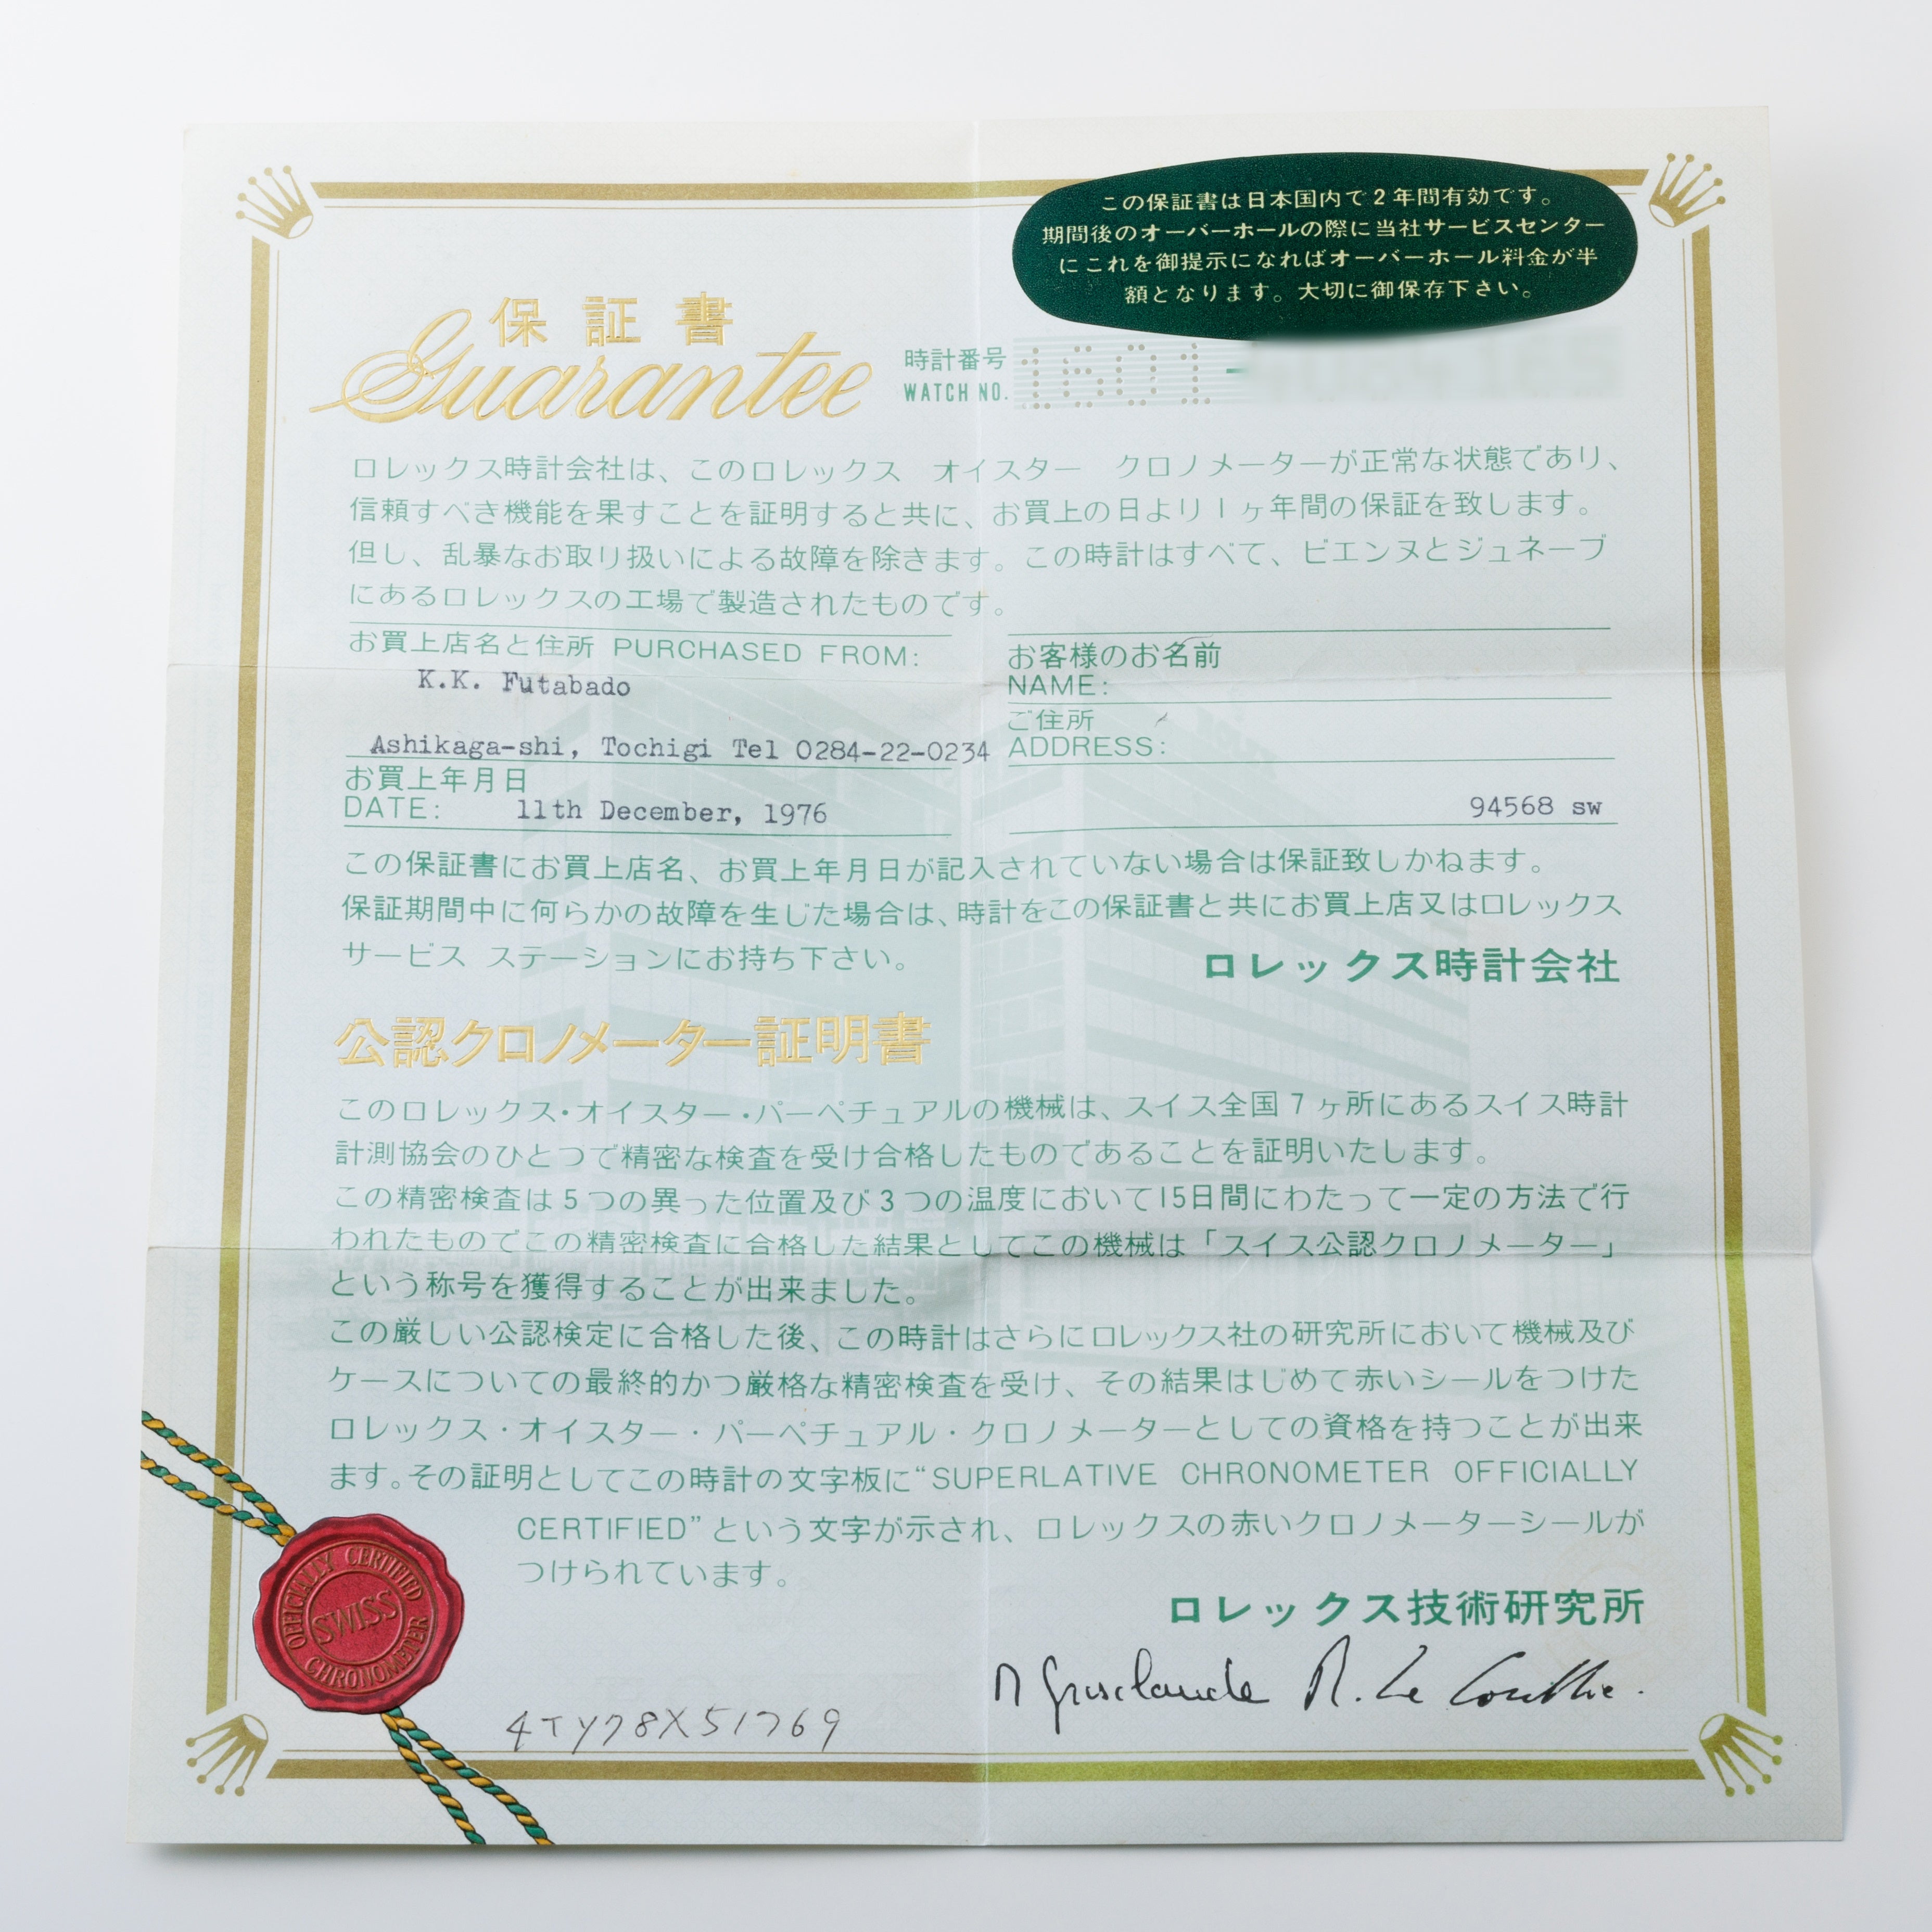 この保証書は日本国内で2年間有効です。
期間後のオーバーホールの際に当社サービスセンター
にこれを御提示になればオーバーホール料金が半
額となります。大切に御保存下さい。
保証書
Guarantee
時計番号
WATCH NO. 1601-
ロレックス時計会社は、このロレックス オイスター クロノメーターが正常な状態であり、
信頼すべき機能を果すことを証明すると共に、お買上の日より1ヶ年間の保証を致します。
但し、乱暴なお取り扱いによる故障を除きます。この時計はすべて、ビエンヌとジュネーブ
にあるロレックスの工場で製造されたものです。
お買上店名と住所 PURCHASED FROM:
K.K. Futabado
Ashikaga-shi, Tochigi Tel 0284-22-0234
お客様のお名前
NAME:
ご住所
ADDRESS:
お買上年月日
DATE: 11th December, 1976
94568 sw
この保証書にお買上店名、お買上年月日が記入されていない場合は保証致しかねます。
保証期間中に何らかの故障を生じた場合は、時計をこの保証書と共にお買上店又はロレックス
サービス ステーションにお持ち下さい。
ロレックス時計会社
公認クロノメーター証明書
このロレックス・オイスター・パーペチュアルの機械は、スイス全国7ヶ所にあるスイス時計
計測協会のひとつで精密な検査を受け合格したものであることを証明いたします。
この精密検査は5つの異った位置及び3つの温度において15日間にわたって一定の方法で行
われたものでこの精密検査に合格した結果としてこの機械は「スイス公認クロノメーター」
という称号を獲得することが出来ました。
この厳しい公認検定に合格した後、この時計はさらにロレックス社の研究所において機械及び
ケースについての最終的かつ厳格な精密検査を受け、その結果はじめて赤いシールをつけた
ロレックス・オイスター・パーペチュアル・クロノメーターとしての資格を持つことが出来
ます。その証明としてこの時計の文字板に“SUPERLATIVE CHRONOMETER OFFICIALLY
CERTIFIED”という文字が示され、ロレックスの赤いクロノメーターシールが
つけられています。
ロレックス技術研究所
OFFICIALLY CERTIFIED
SWISS
CHRONOMETER
4TY78X51769